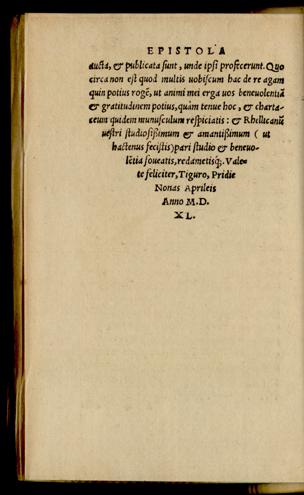 EPISTOLA
aucta, & publicata sunt, unde ipsi profecerunt. Quo
circa non est quod multis uobiscum hac de re agam
quin potius rogẽ, ut animi mei erga uos beneuolentiã
& gratitudinem potius, quàm tenue hoc, & charta-
ceum quidem munusculum respiciatis: & Rhellicanũ
uestri studiosißimum & amantißimum (ut
hactenus fecistis) pari studio & beneuo-
lẽtia foueatis, redametisq;. Vale-
te feliciter, Tiguro, Pridie
Nonas Aprileis
Anno M.D.
XL.